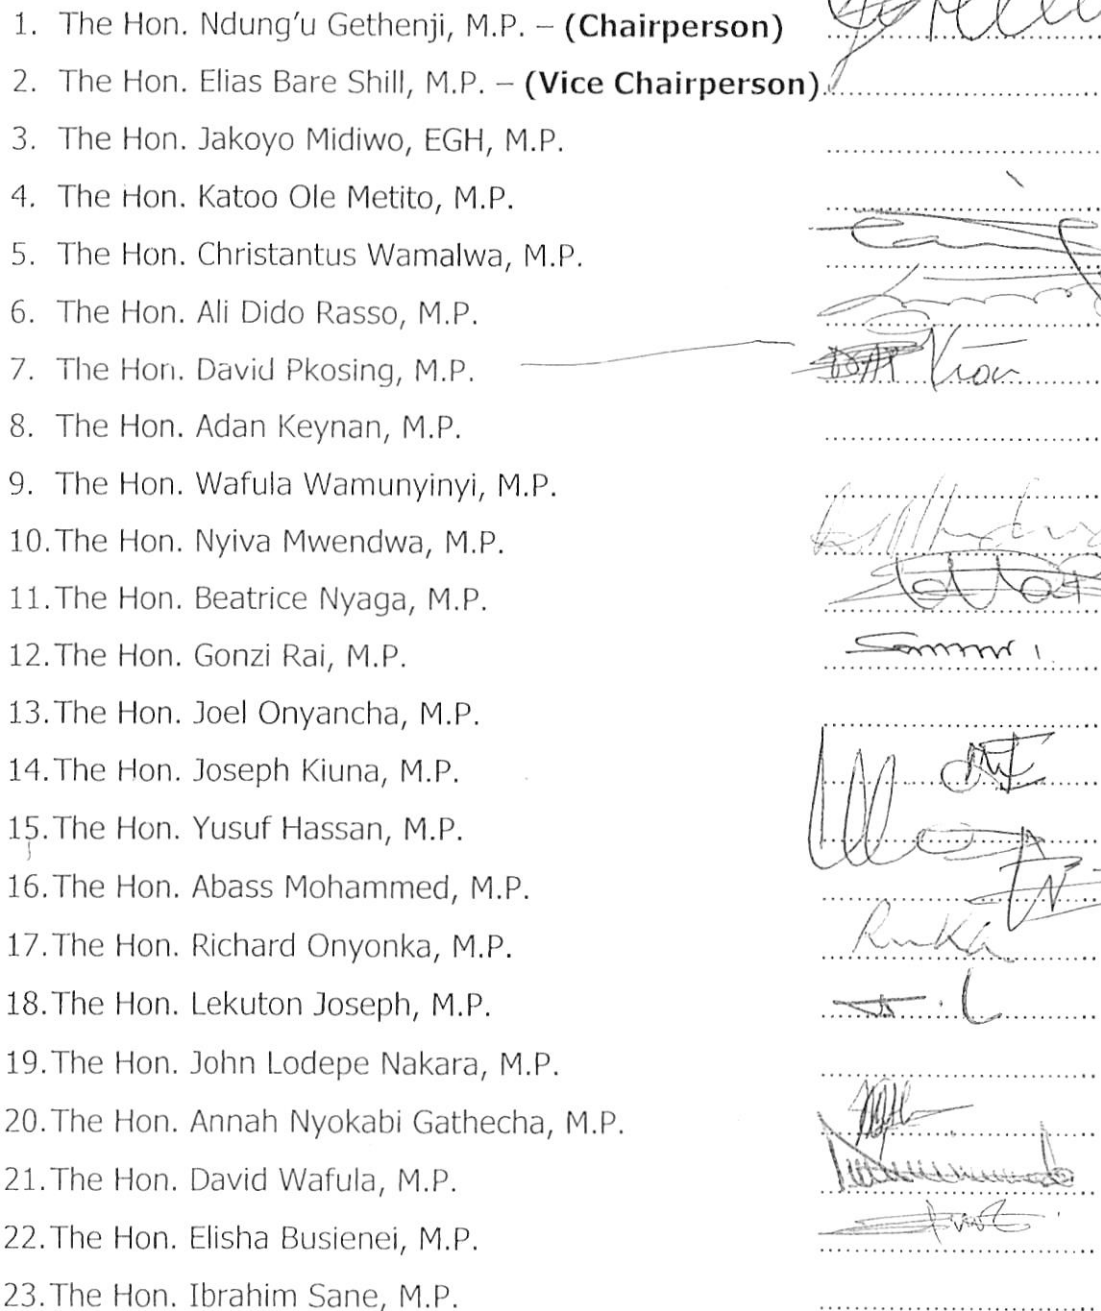 1. The Hon. Ndung'u Gethenji, M.P. – (Chairperson)
2. The Hon. Elias Bare Shill, M.P. – (Vice Chairperson)
3. The Hon. Jakoyo Midiwo, EGH, M.P.
4. The Hon. Katoo Ole Metito, M.P.
5. The Hon. Christantus Wamalwa, M.P.
6. The Hon. Ali Dido Rasso, M.P.
7. The Hon. David Pkosing, M.P.
8. The Hon. Adan Keynan, M.P.
9. The Hon. Wafula Wamunyinyi, M.P.
10. The Hon. Nyiva Mwendwa, M.P.
11. The Hon. Beatrice Nyaga, M.P.
12. The Hon. Gonzi Rai, M.P.
13. The Hon. Joel Onyancha, M.P.
14. The Hon. Joseph Kiuna, M.P.
15. The Hon. Yusuf Hassan, M.P.
16. The Hon. Abass Mohammed, M.P.
17. The Hon. Richard Onyonka, M.P.
18. The Hon. Lekuton Joseph, M.P.
19. The Hon. John Lodepe Nakara, M.P.
20. The Hon. Annah Nyokabi Gathecha, M.P.
21. The Hon. David Wafula, M.P.
22. The Hon. Elisha Busienei, M.P.
23. The Hon. Ibrahim Sane, M.P.